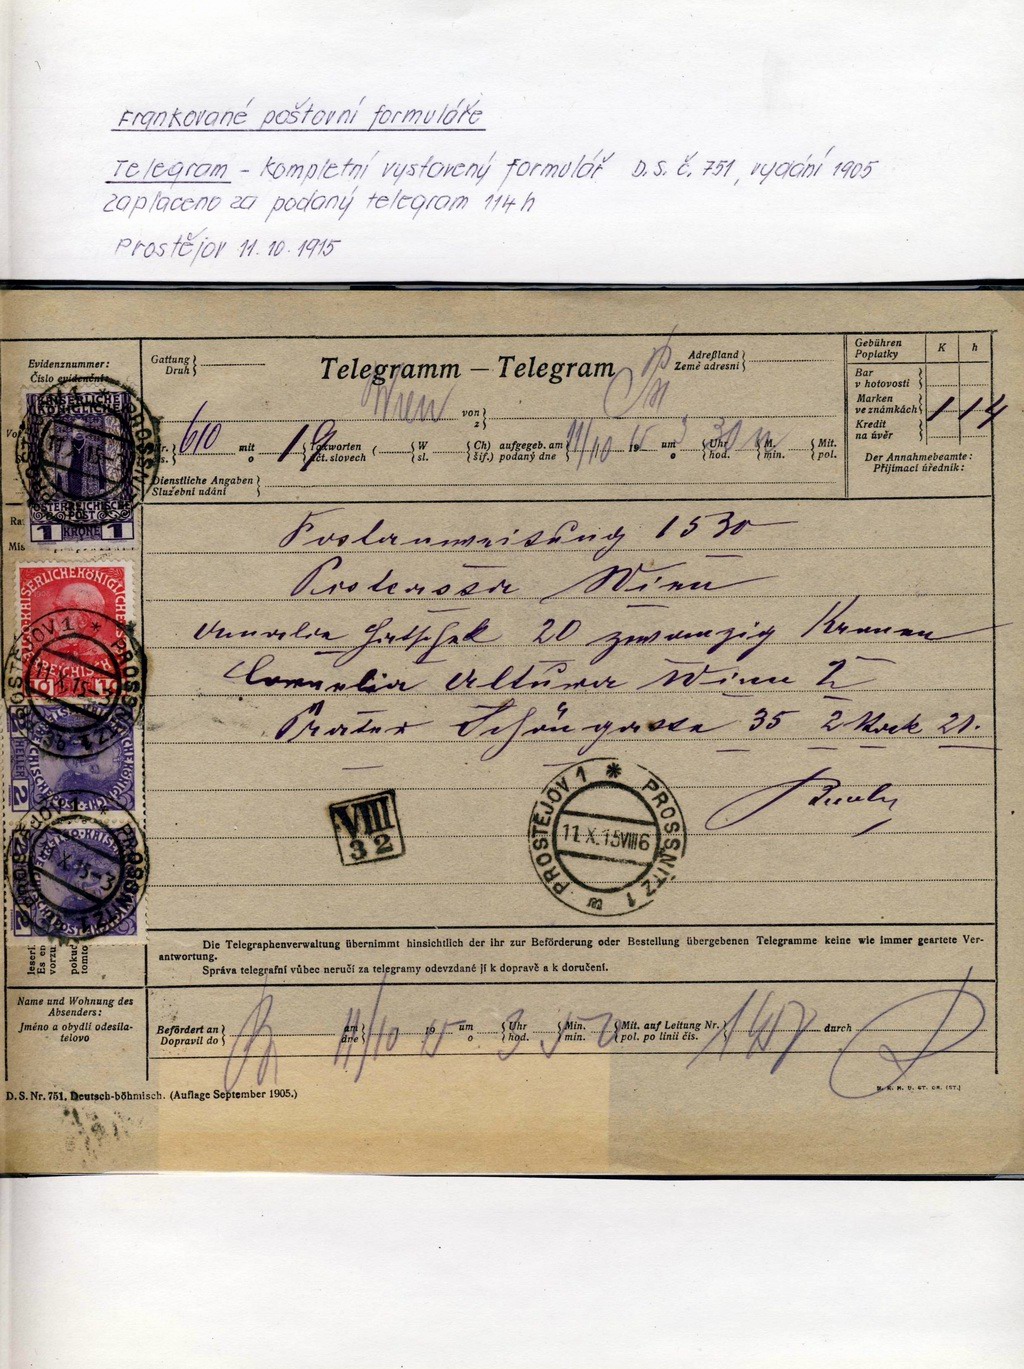 Frankované poštovní formuláře
Telegram - kompletní vystavený formulář D.S.č. 751, vydání 1905
zaplaceno za podaný telegram 114h
Prostějov 11.10.1915
Evidenznummer:
Číslo evidenční:
Gattung
Druh
Telegramm — Telegram
Adreßland
Země adresní
Gebühren
Poplatky
K
h
Bar
v hotovosti
Marken
ve známkách
1 14
Kredit
na úvěr
Der Annahmebeamte:
Přijímací úředník:
Wien
von
z
610 mit
o
19 Taxworten
úct. slovech
W
sl.
Ch
šif.
aufgegeb. am
podaný dne
11/10 1915 um
o
3 Uhr
hod.
30 M.
min.
Mit.
pol.
Dienstliche Angaben
Služební udání
KAISERLICHE
KÖNIGLICHE
ÖSTERREICHISCHE
POST
1 KRONE 1
Postanweisung 1530
Postcassa Wien
Amalie Hatschek 20 zwanzig Kronen
Cornelia Altura Wien 2
Prater Schöngasse 35 2 Stock 21.
VIII
32
PROSTĚJOV 1 * PROSSNITZ 1
11.X.15 VIII 6
2 HELLER
Die Telegraphenverwaltung übernimmt hinsichtlich der ihr zur Beförderung oder Bestellung übergebenen Telegramme keine wie immer geartete Ver-
antwortung.
Správa telegrafní vůbec neručí za telegramy odevzdané jí k dopravě a k doručení.
Name und Wohnung des
Absenders:
Jméno a obydlí odesíla-
telovo
Befördert an
Dopravil do
am
dne
11/10 1915 um
o
3 Uhr
hod.
50 Min.
min.
Mit. auf Leitung Nr.
pol. po linii čís.
durch
D. S. Nr. 751. Deutsch-böhmisch. (Auflage September 1905.)